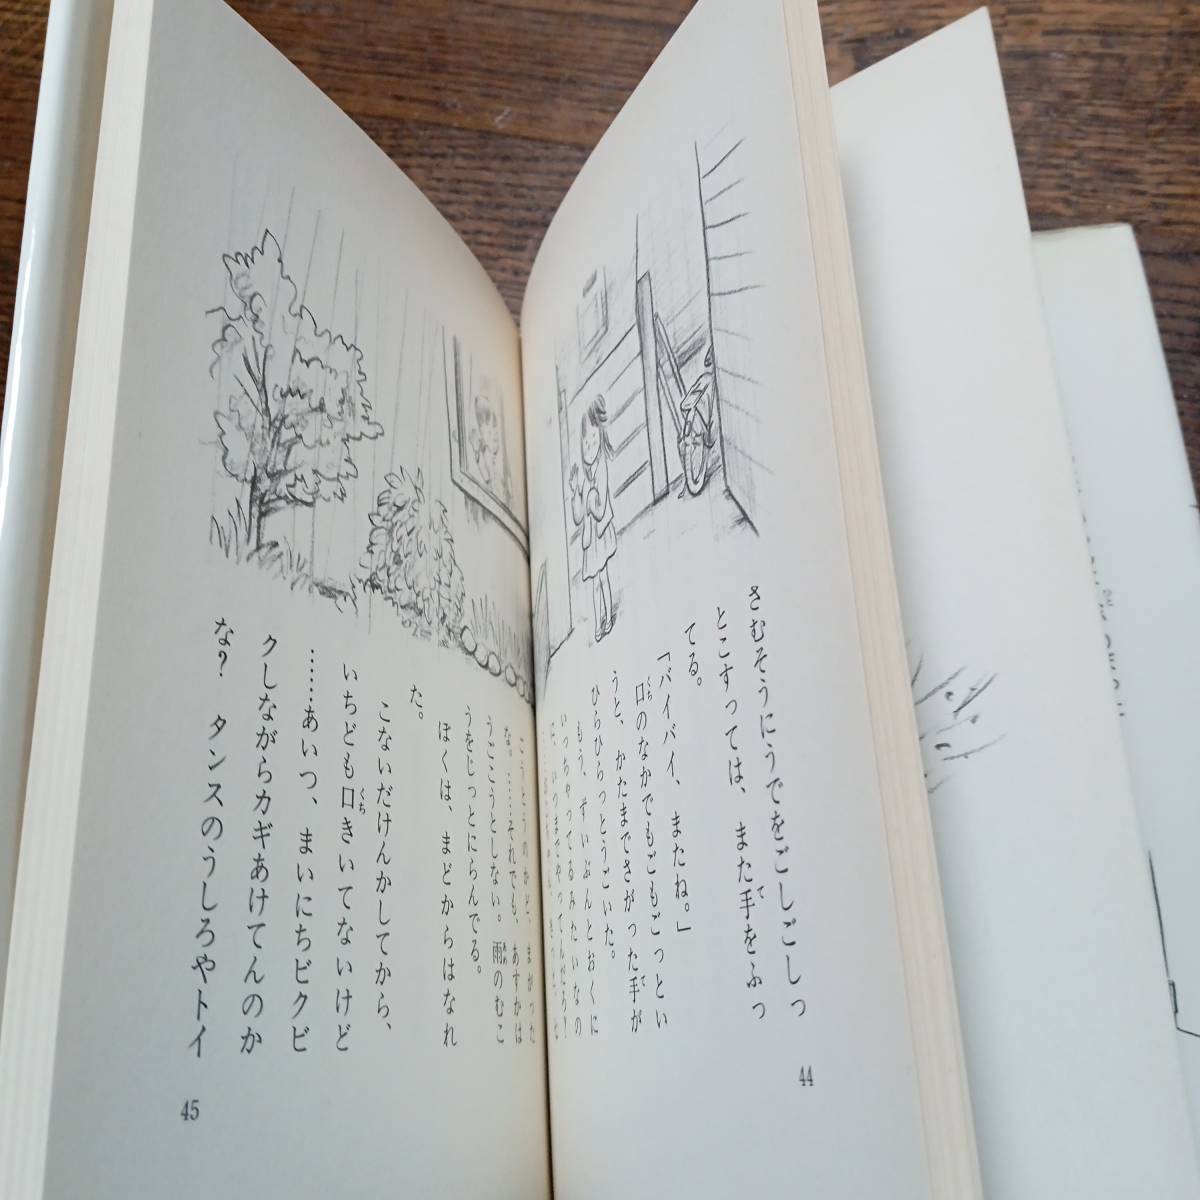 さむそうにうでをごしごしっ
とこすっては、また手をふっ
てる。
「バイバイ、またね。」
口のなかでもごもごっとい
うと、かたまでさがった手が
ひらひらっとうごいた。
もう、ずいぶんとおくに
いっちゃってるみたいなの
に、いつまでやってんだろ?
44
こうとうのかど、まがった
な。……それでも、あすかは
うごこうとしない。雨のむこ
うをじっとにらんでる。
ぼくは、まどからはなれ
た。
こないだけんかしてから、
いちども口きいてないけど
……あいつ、まいにちビクビ
クしながらカギあけてんのか
な? タンスのうしろやトイ
45